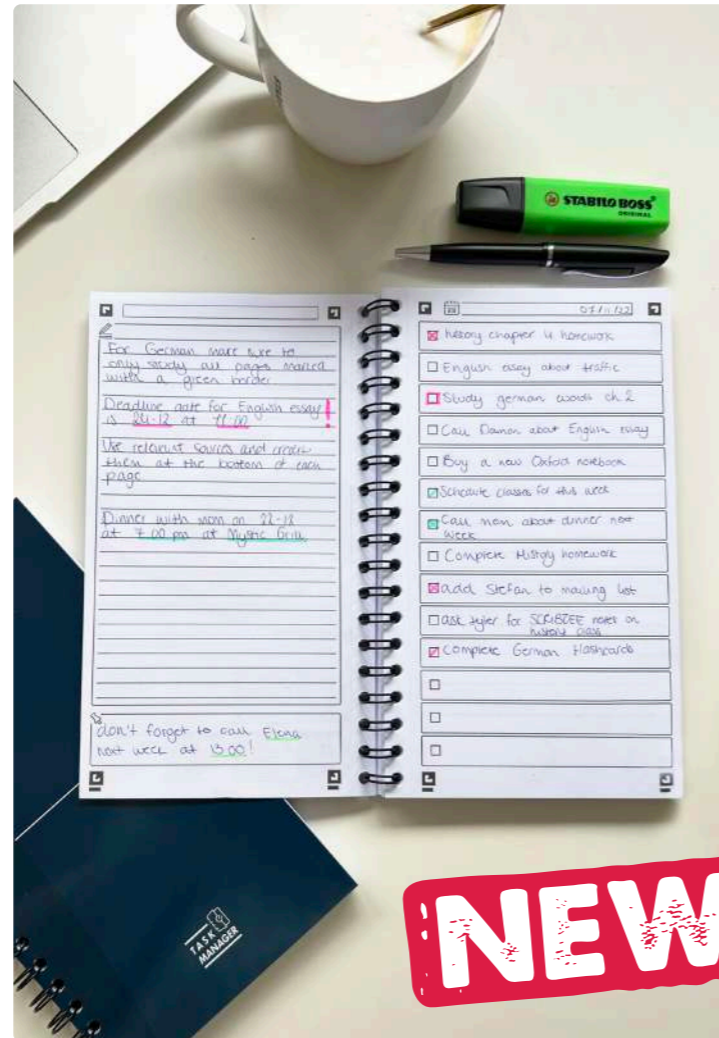 STABILO BOSS
ORIGINAL
For German make sure to
only study all pages marked
with a green border
Deadline date for English essay
is 24-12 at 11:00
!
Use relevant sources and credit
them at the bottom of each
page
Dinner with mom on 22-12
at 7.00 pm at Mystic Grill
don't forget to call Elena
next week at 13.00!
07/11/22
history chapter 4 homework
English essay about traffic
Study german words ch 2
Call Damon about English essay
Buy a new Oxford notebook
Schedule classes for this week
Call mom about dinner next
week
Complete History homework
add Stefan to mailing list
ask tyler for SCRIBZEE notes on
history class
Complete German flashcards
TASK
MANAGER
NEW